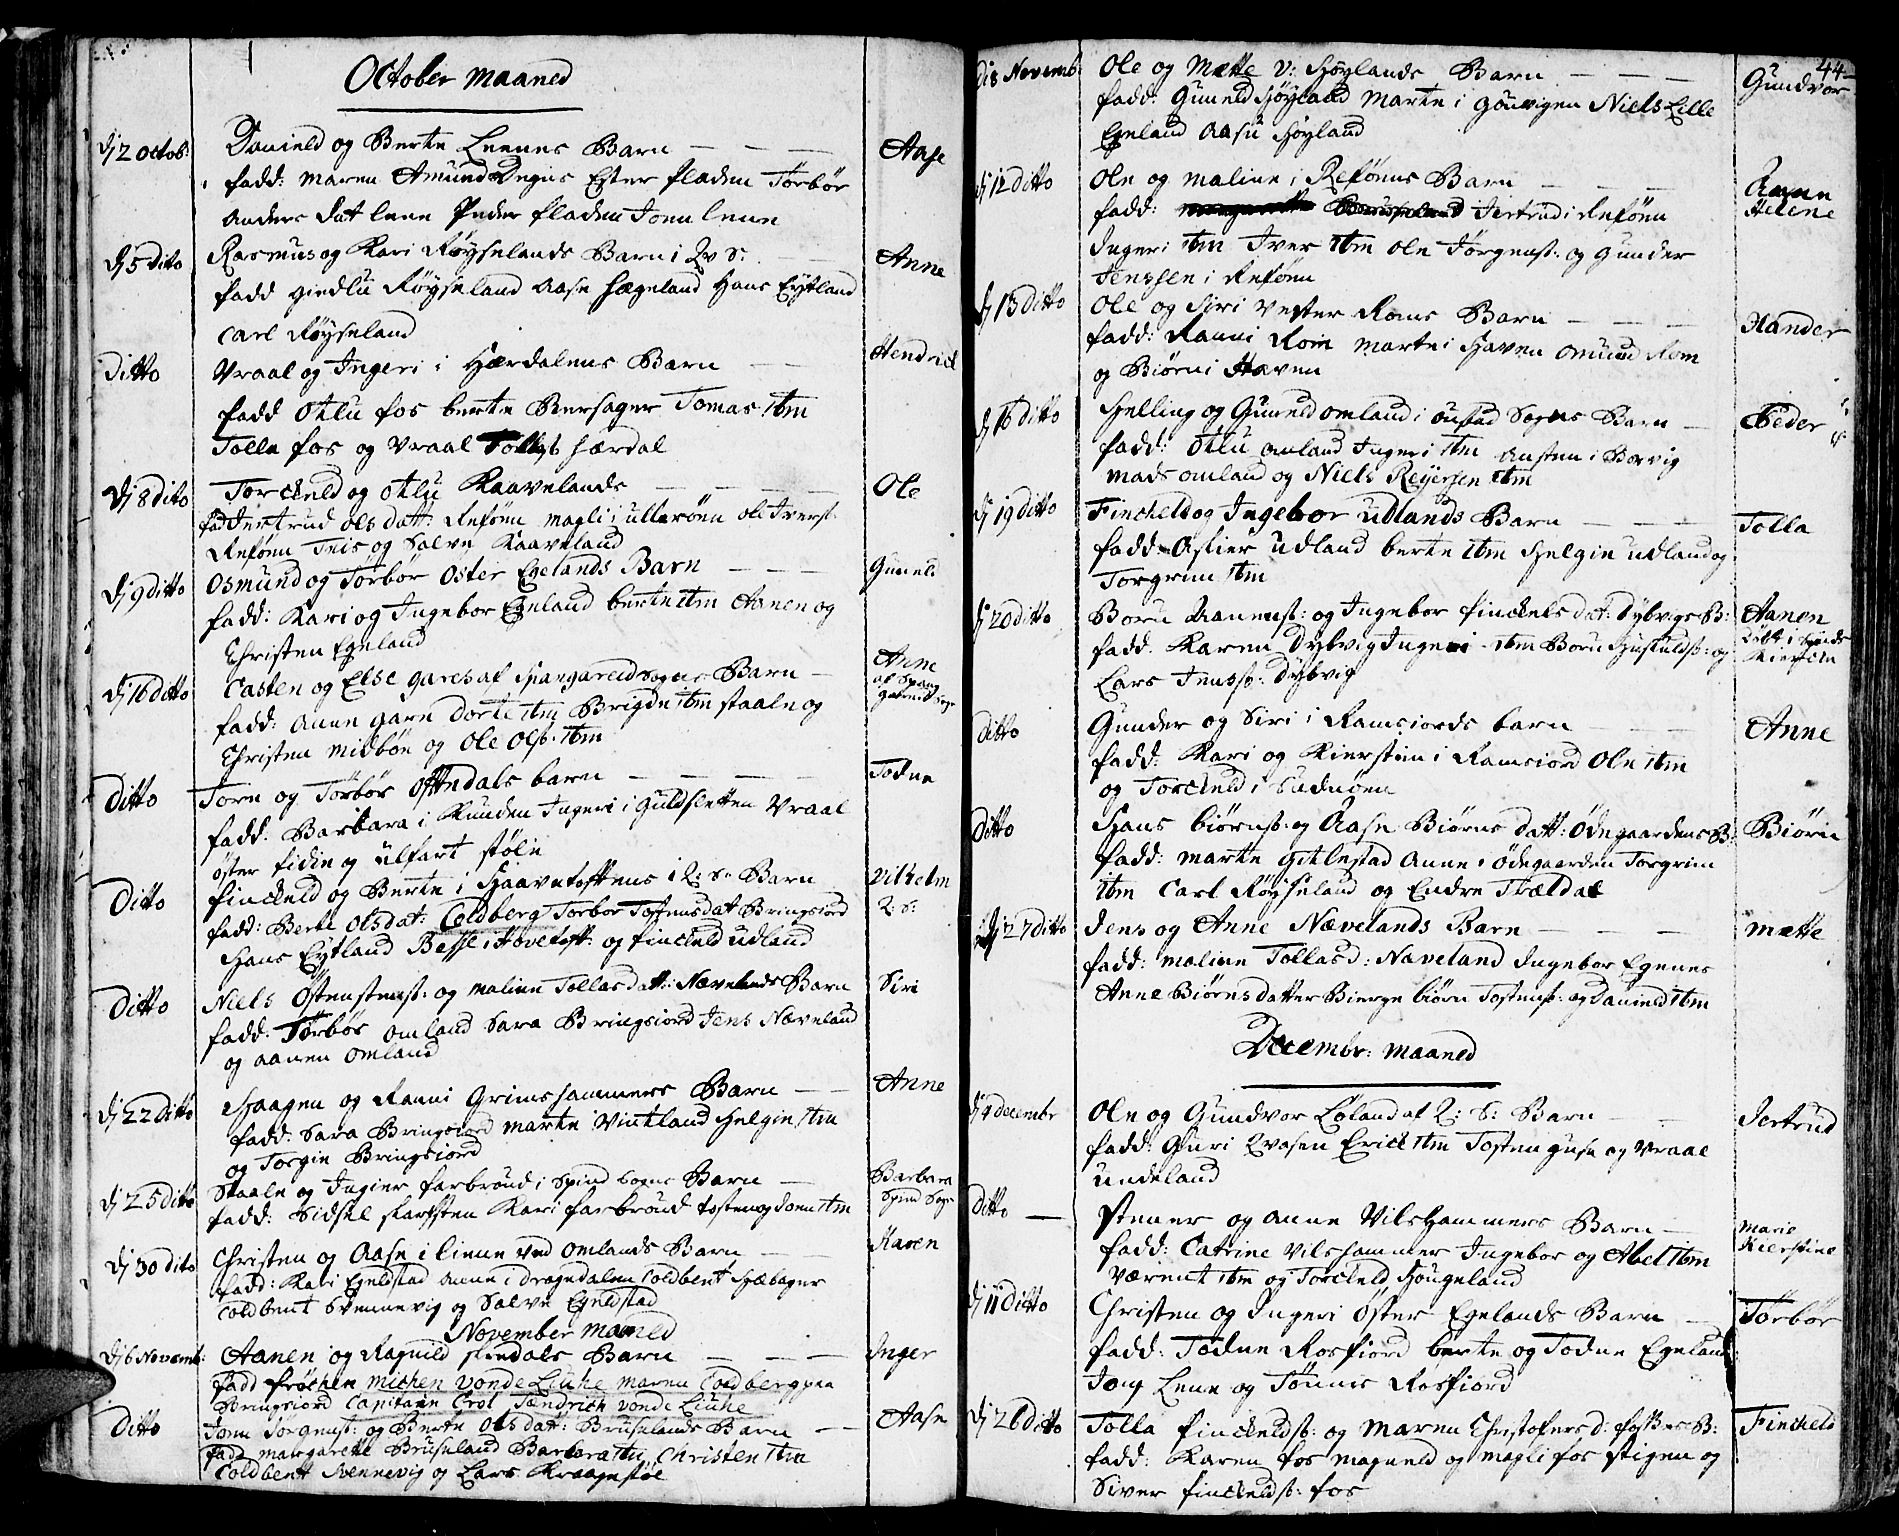 October maaned
Dj 2 octob: Danield og Berte Leenes Barn — — — Aase
fadd: maren Amunds Degns Ester fladen Törbör
anders dat lene Peder fladen Jonn lene
Dj 5 dito Rasmus og Kari Röyselands Barn i Qv S: Anne
fadd giedlu Röyseland Aase Hægeland Hans Eytland
Carl Röyseland
Ditto Vraal og Ingeri i Hærdalens Barn — — Hendrick
fadd Otlu fos berte Bersager Tomas Itm
Tolle fos og Vraal Hærdal
Dj 8 dito Torckeld og otlu Kaavelands — — — Ole
fadd Jertrud ols datt: Refönn magli i ulleröen ole Iverss:
Refönn Teis og Salve Kaaveland
Dj 9 ditto Osmund og Törbör Oster Egelands Barn — — — Guneld
fadd: Kari og Ingebor Egeland berte Itm Aanen og
Christen Egeland
Dj 16 ditto Casten og Else gares af Spangareid Sogns Barn — Anne af Spang gareid Sogn
fadd: Anne gare Dorte Itm Brigde Itm staale og
Christen midböe og Ole Olss: Itm
Ditto Jorn og Törbör Ofttedals barn — — — — Todne
fadd: Barbara i Kunden Ingeri i Guldsletten Vraal
öster fidie og ülfart stöle
Ditto finckeld og Berte i Haavetofftens i Q: S: Barn — Vilhelm Q: S:
fadd: Berte Olsdat: Coldberg Torbor Tostensdat Bringsiord
Hans Eytland Besse i Hovetoft: og finckeld udland
Ditto Niels Östensteness: og maline Tollasdatt: Nævelands Barn Siri
fadd: Törbör Omland Sara Bringsiord Jens Næveland
og aanen Omland
Dj 22 ditto Haagen og Ranni Grimshammers Barn — — Anne
fadd: Sara Bringsiord marte Vintland Helgie Itm
og Torgie Bringsiord
Dj 25 ditto Staale og Ingier farbröud i Spind Sogns Barn — Barbara Spind Sogn
fadd: Sidsel Karsten Kari farbröud tosten og Jonn Itm
Dj 30 dito Christen og Aase i liene ved Omlands Barn — — Karen
fadd: Kari Egeldstad Anne i dragedalen Coldbent Hæbager
Coldbent Svennevig og Salve Egeldstad
November maaned
Dj 6 Novemb: Aanen og Ragnild skredals Barn — — — Inger
fadd fröchen michen vonde Liuhe maren Coldberg paa
Bringsiord Capitain Crol Fændrich vonde Liuhe
Ditto Jonn Torgness: og Berte Olsdatt: Bruselands Barn — — Aase
fadd margarethe Bruseland Barbara Itm Christen Itm
Coldbent Svennevig og Lars Kraagestöe
44
Di 8 Novemb: Ole og Mette V: Höylands Barn — — — Gundvor
fadd: Guneld Höyland Marte i gouvigen Niels Lille
Egeland Aasu Höyland
Dj 12 Ditto Ole og maline i Reföens Barn — — — Anne Helene
fadd: Jertrud i Reföen
Ingeri Itm Iver Itm Ole Jörgenss: og Gunder
Jenssen i Reföen
Dj 13 ditto Ole og Siri Vester Roms Barn — — — Xander
fadd: Ranni Rom marte i Haven Omund Rom
og Biörn i Haven
Dj 16 ditto Helling og Guneld omland i önstad Sogns Barn — Peder
fadd: Otlu Omland Ingeri Itm Austen i Borvig
Mads omland og Niels Reyersen Itm
Dj 19 ditto Finckeld og Ingebor udlands Barn — — — Tolla
fadd: Asgier udland berte Itm Helgie udland og
Torgrim Itm
Dj 20 ditto Boru Aaness: og Ingebor finckelsdat: Dybvigs B: Aanen
fadd. Karen Dybvig Ingeri Itm Boru : og
Lars Jenss: Dybvig
Ditto Gunder og Siri i Ramsiords barn — — — Anne
fadd: Kari og Kierstine i Ramsiord Ole Itm
og Torckeld i Sudnöen
Ditto Hans biörnss: og Aase Biörnsdatt: Ödegaardens B: Biörn
fadd: marte Gitlestad Anne i Ödegaarden Torgrim
Itm Carl Röyseland og Endre Trældal
Dj 27 ditto Jens og Anne Nævelands Barn — — — mette
fadd: maline Tollasd: Næveland Ingebor Egenes
Anne Biörnsdatter Bierge biörn Tostenss: og Danield Itm
Decembr: maaned
Dj 4 decembr Ole og Gundvor Löland af Q: S: Barn — Jertrud
fadd: Guri Qvasen Erick Itm Tosten guse og Vraal
undeland
Ditto — Stener og anne Vilshammers Barn — Marie Kierstine
fadd: Catrine Vilshammer Ingebor og Abel Itm
Værent Itm og Torckeld Hougeland
Dj 11 ditto Christen og Ingeri Öster Egelands Barn — Törbör
fadd: Todne Rosfiord berte og Todne Egeland
Jong Lene og Tönnes Rosfiord
Dj 26 ditto Tolla finckeldss: og Maren Christofersd: fosses B: Finckeld
fadd: Karen fos magneld og magli fos stigen og
Siver finckeldss: fos